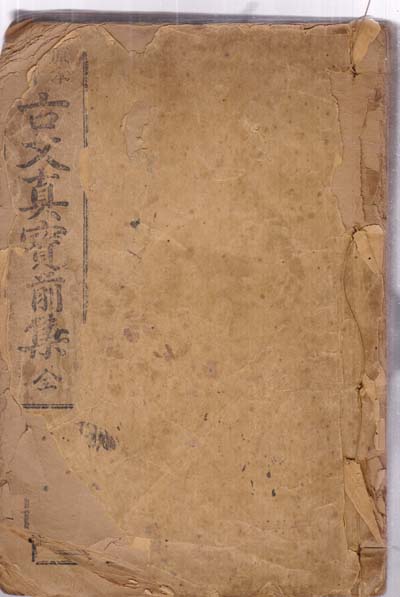 古文真寶前集 全